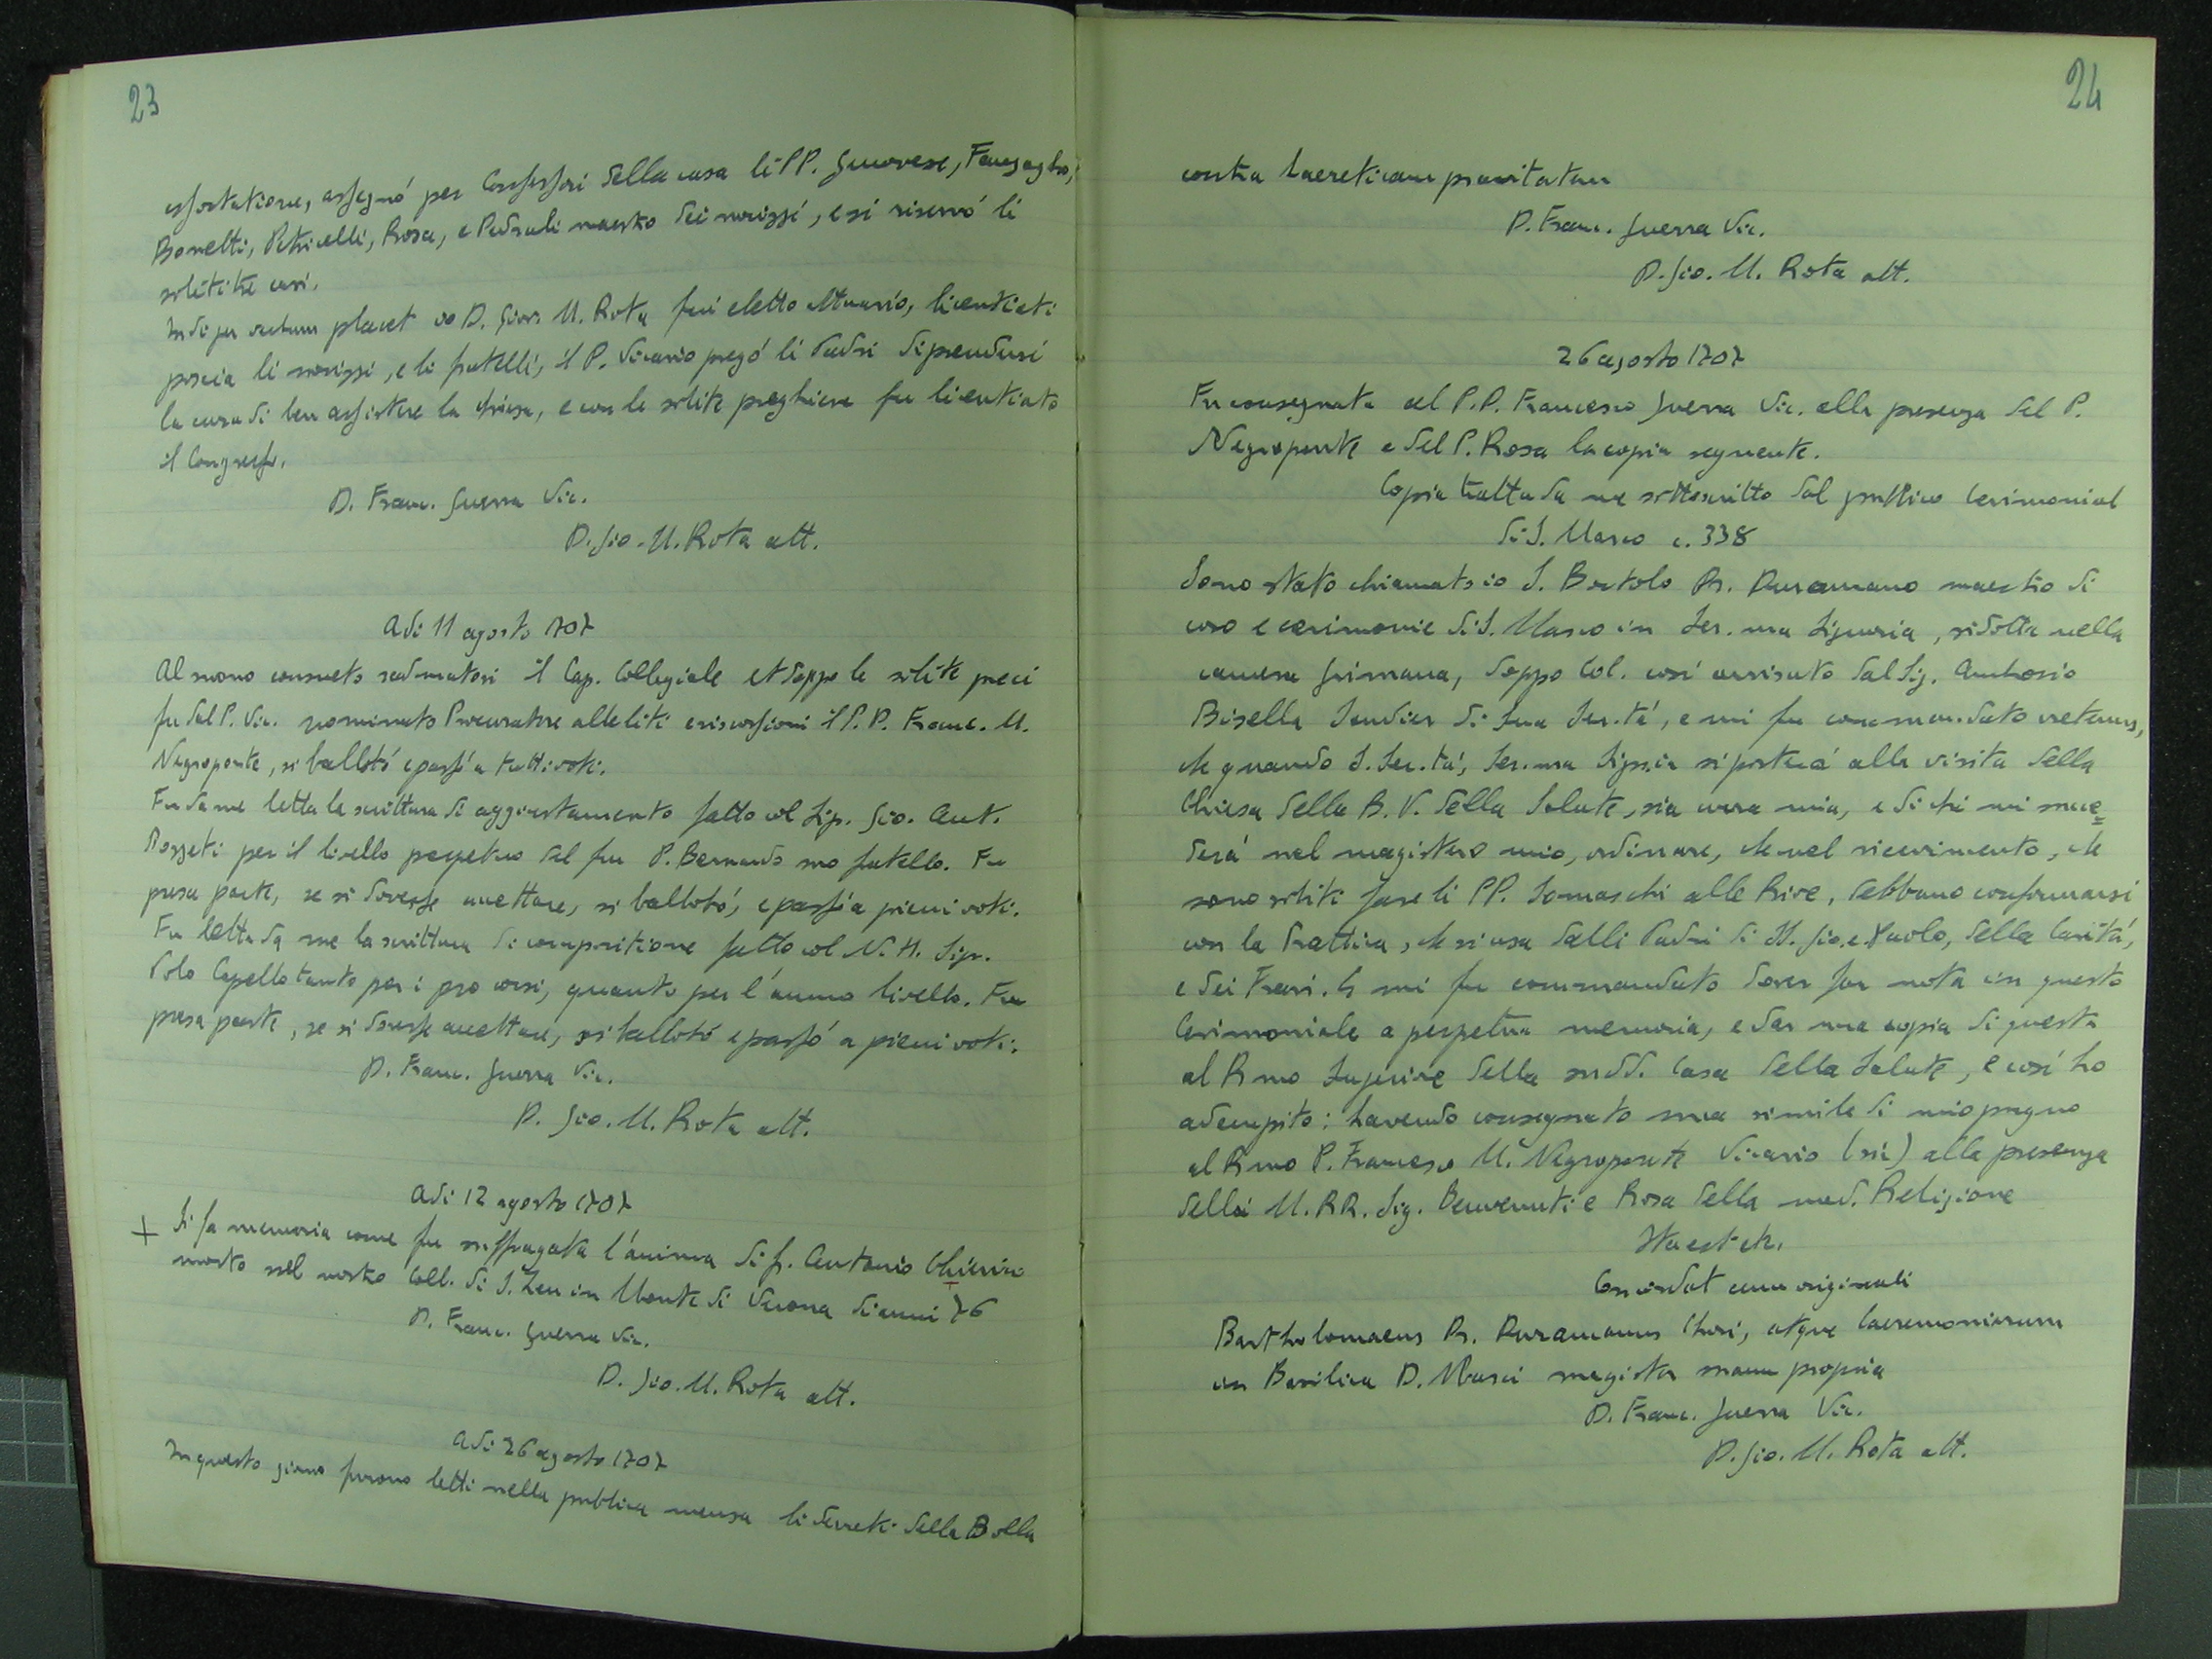 23
esfortatione, assegnò per Confessori della casa li PP. Genovese,
Bonelli, Petricelli, Rosa, e Pedrali maestro dei novizzi, e si riservò li
soliti tre casi.
Indi per verbum placet io D. Giov. M. Rota fui eletto Attuario, licentiati
poscia li novizzi, e li fratelli, il P. Vicario pregò li Padri di prendersi
la cura di ben assistere la chiesa, e con le solite preghiere fu licentiato
il Congresso.
D. Franc. Guerra Vic.
D. Gio. M. Rota att.
Adi 11 agosto 1707
Al suono consueto radunatosi il Cap. Collegiale et doppo le solite preci
fu dal P. Vic. nominato Procuratore alle liti e riscossioni il P. D. Franc. M.
Negroponte, si ballotò e passò a tutti voti.
Fu da me letta la scrittura di aggiustamento fatto col Sig. Gio. Ant.
Rozzeti per il livello perpetuo del fu P. Bernardo suo fratello. Fu
presa parte, se si dovesse accettare, si ballotò, e passò a pieni voti.
Fu letta da me la scrittura di compositione fatto col N. H. Sigr.
Polo Capello tanto per i pro corsi, quanto per l'annuo livello. Fu
presa parte, se si dovesse accettare, si ballotò e passò a pieni voti.
D. Franc. Guerra Vic.
D. Gio. M. Rota att.
Adi 12 agosto 1707
+ Si fa memoria come fu suffragata l'anima di fr. Antonio
morto nel nostro Coll. di S. Zen in Monte di Verona d'anni 76
D. Franc. Guerra Vic.
D. Gio. M. Rota att.
Adi 26 agosto 1707
In questo giorno furono letti nella publica mensa li decreti della Bolla
24
contra haereticam pravitatem
D. Franc. Guerra Vic.
D. Gio. M. Rota att.
26 agosto 1707
Fu consegnata al P. D. Francesco Guerra Vic. alla presenza del P.
Negroponte e del P. Rosa la copia seguente.
Copia tratta da me sottoscritto dal publico Cerimonial
di S. Marco c. 338
Sono stato chiamato io S. Bortolo Pr. Duramano maestro di
coro e cerimonie di S. Marco in Ser.ma Signoria, ridotta nella
camera Grimana, doppo Col. così avvisato dal Sig. Ambrosio
Bisella Scudier di Sua Ser.tà, e mi fu commandato
che quando S. Ser.tà, Ser.ma Sig.ria si porterà alla visita della
Chiesa della B. V. della Salute, sia cura mia, e di chi mi succe=
derà nel magistero mio, ordinare, che nel ricevimento, che
sono soliti fare li PP. Somaschi alle Rive, debbano conformarsi
con la Prattica, che si usa dalli Padri di SS. Gio. e Paolo, della Carità,
e dei Frari. Et mi fu commandato dover far nota in questo
Cerimoniale a perpetua memoria, e dar una copia di questa
al R.mo Superiore della sudd. Casa della Salute, e così ho
adempito: havendo consegnato una simile di mio pugno
al R.mo P. Francesco M. Negroponte Vicario (sic) alla presenza
delli M. RR. Sig. Benvenuti e Rosa della med. Religione
Ita est etc.
Concordat cum originali
Bartholomaeus Pr. Duramanus Chori, atque Caeremoniarum
in Basilica D. Marci magister manu propria
D. Franc. Guerra Vic.
D. Gio. M. Rota att.